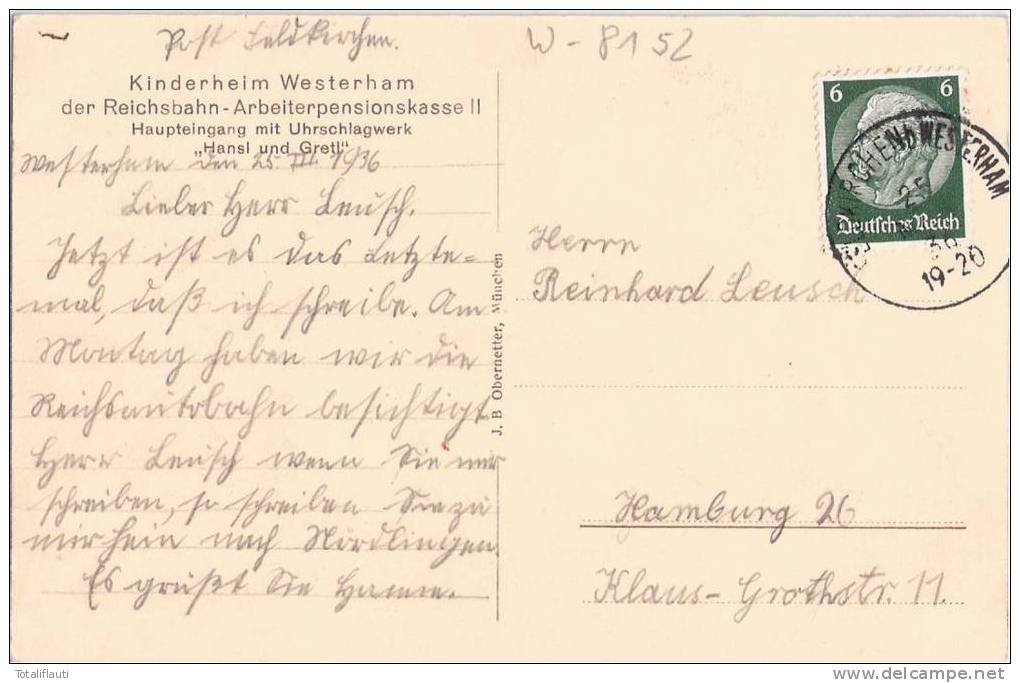 Post Feldkirchen.
W-8152
Kinderheim Westerham
der Reichsbahn-Arbeiterpensionskasse II
Haupteingang mit Uhrschlagwerk
„Hansl und Gretl"
Westerham den 25. III. 1936
Lieber Herr Leusch.
Jetzt ist es das Letzte-
mal, daß ich schreibe. Am
Montag haben wir die
Reichsautobahn besichtigt
Herr Leusch wenn Sie mir
schreiben, so schreiben Sie zu
mir heim nach Nördlingen.
Es grüßt Sie
J. B. Obernetter, München
6 6
Deutsches Reich
FELDKIRCHEN WESTERHAM
25
36
19-20
Herrn
Reinhard Leusch
Hamburg 26
Klaus-Grothstr. 11.
Totaliflauti
delcampe.net